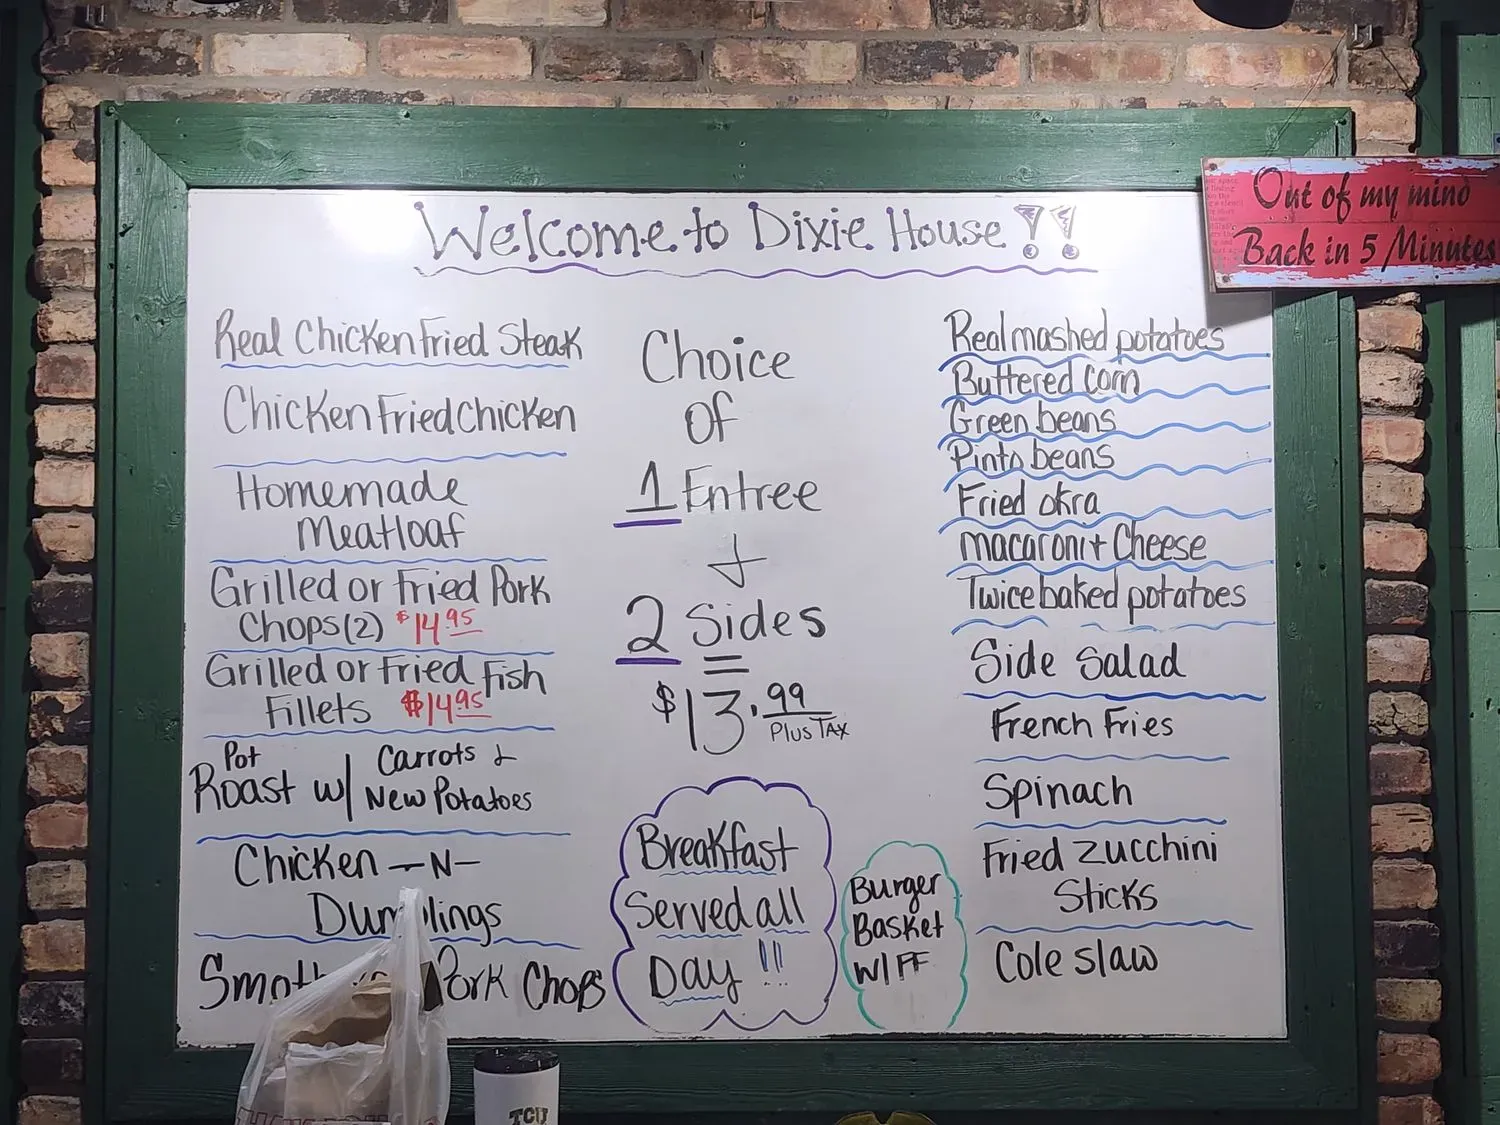 Welcome to Dixie House!!
Real Chicken Fried Steak
Chicken Fried Chicken
Homemade
Meatloaf
Grilled or Fried Pork
Chops (2) $14.95
Grilled or Fried Fish
Fillets $14.95
Pot
Roast w/ Carrots &
New Potatoes
Chicken -N-
Dumplings
Pork Chops
Choice
Of
1 Entree
+
2 Sides
=
$13.99
Plus Tax
Breakfast
Served all
Day!!!
Burger
Basket
W/ FF
Real mashed potatoes
Buttered corn
Green beans
Pinto beans
Fried okra
macaroni + Cheese
Twice baked potatoes
Side Salad
French Fries
Spinach
Fried Zucchini
Sticks
Cole slaw
Out of my mind
Back in 5 Minutes
TCU